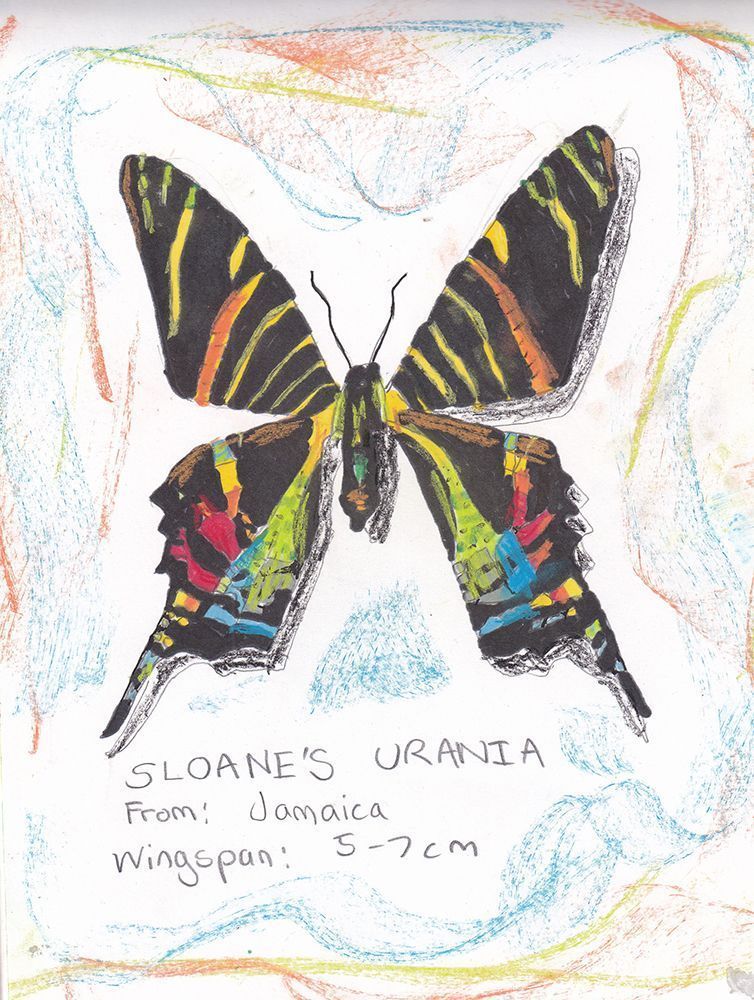 SLOANE'S URANIA
From: Jamaica
Wingspan: 5-7cm